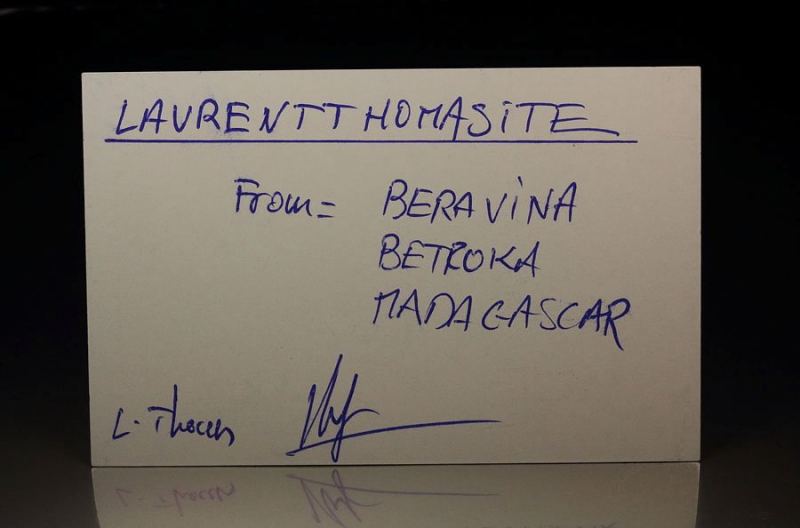 LAURENTTHOMASITE
From = BERAVINA
BETROKA
MADAGASCAR
L. Thomas